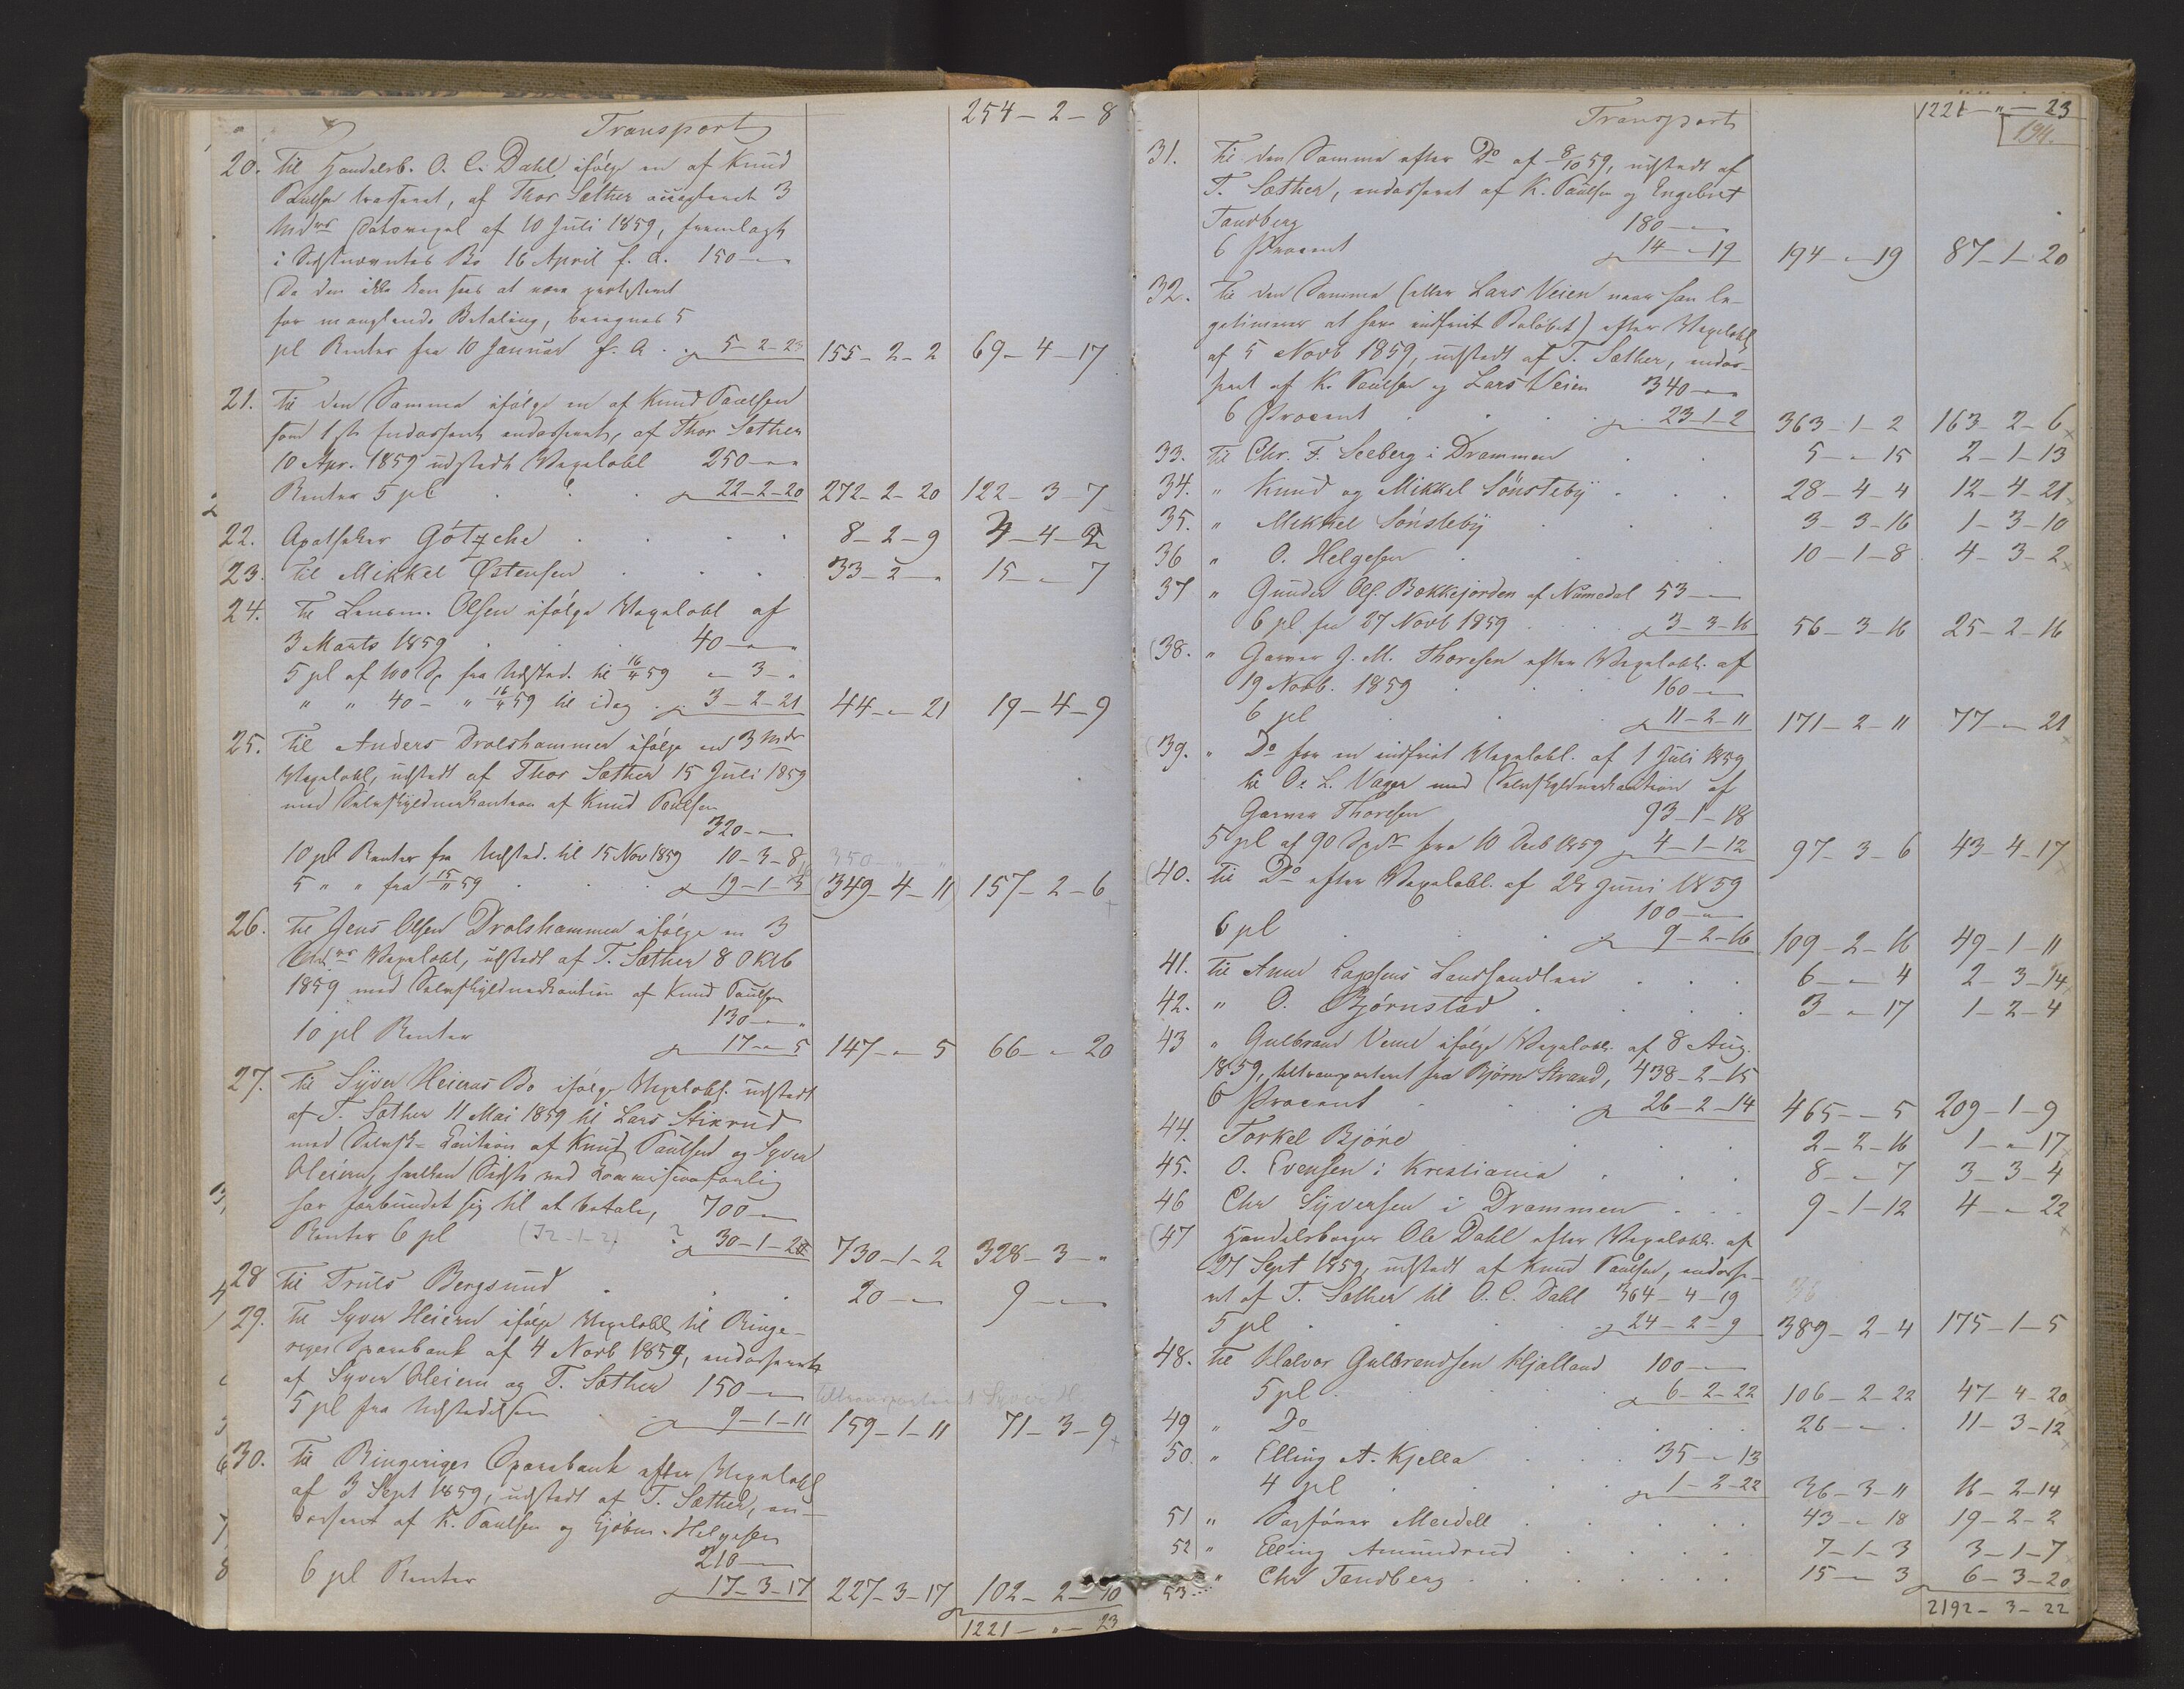 Transport 254 - 2 - 8
20. Til Handelsb. O. C. Dahl ifølge en af Knud
Paulsen trasseret, af Thor Sæther accepteret 3
Mdrs Datovexel af 10 Juli 1859, fremlagt
i Sidstnævntes Bo 16 April f. A. 150 - " - "
Da den ikke kan sees at være protesteret
for manglende Betaling, beregnes 5
pCt Renter fra 10 Januar f. A. 5 - 2 - 2 155 - 2 - 2 69 - 4 - 17
21. Til den Samme ifølge en af Knud Paulsen
som 1ste Endossent endosseret, af Thor Sæther
10 Apr. 1859 udstedt Vexelobl 250 - " - "
Renter 5 pCt 22 - 2 - 20 272 - 2 - 20 122 - 3 - 7
22. Apotheker Götzche 8 - 2 - 9
23. Til Mikkel Østensen 33 - 2 - " 15 - " - 7
24. Til Lensm. Olsen ifølge Vexelobl af
3 Marts 1859 40 - " - "
5 pCt af 100 Spd fra Udsted. til 16/4 59 " - 3 - "
" " 40 - " 16/4 59 til idag 3 - 2 - 21 44 - " - 21 19 - 4 - 9
25. Til Anders Drolshammer ifølge en 3 Mdrs
Vexelobl, udstedt af Thor Sæther 15 Juli 1859
med Selvskyldnerkaution af Knud Paulsen
320 - " - "
10 pCt Renter fra Udsted. til 15 Nov 1859 10 - 3 - 8 350 - " - "
5 " " fra 15/11 59 19 - 1 - 3 (349 - 4 - 11) 157 - 2 - 6
26. Til Jens Olsen Drolshammer ifølge en 3
Mdrs Vexelobl, udstedt af T. Sæther 8 Oktb
1859 med Selvskyldnerkaution af Knud Paulsen
130 - " - "
10 pCt Renter 17 - " - 5 147 - " - 5 66 - " - 20
27. Til Syver Heierns Bo ifølge Vexelobl. udstedt
af T. Sæther 11 Mai 1859 til Lars Stixrud
med Selvsk= Kaution af Knud Paulsen og Syver
Heiern, hvilken Sidste ved Kommissionsforlig
har forbundet sig til at betale, 700 - "
Renter 6 pCt (32-1-2) ? 30 - 1 - 2 730 - 1 - 2 328 - 3 - "
28 Til Truls Bergsund 20 - " - 9 - " -
29. Til Syver Heiern ifølge Vexelobl, til Ringe-
riges Sparebank af 4 Novb 1859, endosseret
af Syver Heiern og T. Sæther 150 - " - 
5 pCt fra Udstedelsen 9 - 1 - 11 159 - 1 - 11 71 - 3 - 9
30. Til Ringeriges Sparebank efter Vexelobl
af 3 Sept 1859, udstedt af T. Sæther, en-
dosseret af K. Paulsen og Helgesen
210 - " -
6 pCt Renter 17 - 3 - 17 227 - 3 - 17 102 - 2 - 10
1221 - " - 23
Transport 1221 - " - 23
194.
31. Til den Samme efter Do af 8/10 59, udstedt af
T. Sæther, endosseret af K. Paulsen og Engebret
Tandberg 180 - " -
6 Procent 14 - " - 19 194 - " - 19 87 - 1 - 20
32. Til den Samme (eller Lars Veien naar han le-
gitimerer at have indfriet Beløbet) efter Vexelobl
af 5 Novb 1859, udstedt af T. Sæther, endos-
seret af K. Paulsen og Lars Veien 340 - " -
6 Procent 23 - 1 - 2 363 - 1 - 2 163 - 2 - 6
33. Til Chr. F. Seeberg i Drammen 5 - " - 15 2 - 1 - 13
34. " Knud og Mikkel Sønsteby 28 - 4 - 4 12 - 4 - 21
35. " Mikkel Sønsteby 3 - 3 - 16 1 - 3 - 10
36 " O. Helgesen 10 - 1 - 8 4 - 3 - 2
37 " Gunder Ols. Bækkejorden af Numedal 53 - " -
6 pCt fra 27 Novb 1859 3 - 3 - 16 56 - 3 - 16 25 - 2 - 16
(38. " Garver G. M. Thoresen efter Vexelobl. af
19 Novb. 1859 160 - " -
6 pCt 11 - 2 - 11 171 - 2 - 11 77 - " - 21
(39. " Do for en indfriet Vexelobl. af 1 Juli 1859
til O. L. Vager med Selvskyldnerkaution af
Garver Thoresen 93 - 1 - 18
5 pCt af 90 Spdr fra 10 Decb 1859 4 - 1 - 12 97 - 3 - 6 43 - 4 - 17
(40. Til Do efter Vexelobl. af 28 Juni 1859
100 - " -
6 pCt 9 - 2 - 16 109 - 2 - 16 49 - 1 - 11
41. Til Anne Landhandleri 6 - " - 4 2 - 3 - 14
42. " O. Bjørnstad 3 - " - 17 1 - 2 - 4
43 " Gulbrand Veme ifølge Vexelobl. af 8 Aug.
1859, tiltransporteret fra Bjørn Strand, 438 - 2 - 15
6 Procent 26 - 2 - 14 465 - " - 5 209 - 1 - 9
44. Torkel Bjøre 2 - 2 - 16 1 - " - 17
45. O. Evensen i Kristiania 8 - " - 7 3 - 3 - 4
46 Chr Syversen i Drammen 9 - 1 - 12 4 - " - 22
(47 Handelsborger Ole Dahl efter Vexelobl. af
27 Sept 1859, udstedt af Knud Paulsen, endosse-
ret af T. Sæther til O. C. Dahl 364 - 4 - 19 36
5 pCt 24 - 2 - 9 389 - 2 - 4 175 - 1 - 5
48. Til Halvor Gulbrandsen Hjalland 100 - " -
5 pCt 6 - 2 - 22 106 - 2 - 22 47 - 4 - 20
49 " Do 26 - " - 11 - 3 - 12
50. " Elling A. Kjella 35 - " - 13
4 pCt 1 - 2 - 22 36 - 3 - 11 16 - 2 - 14
51 " Sagfører Meidell 43 - " - 18 19 - 2 - 2
52 " Elling Amundrud 7 - 1 - 3 3 - 1 - 7
53 " Chr Tandberg 15 - " - 3 6 - 3 - 20
2192 - 3 - 22